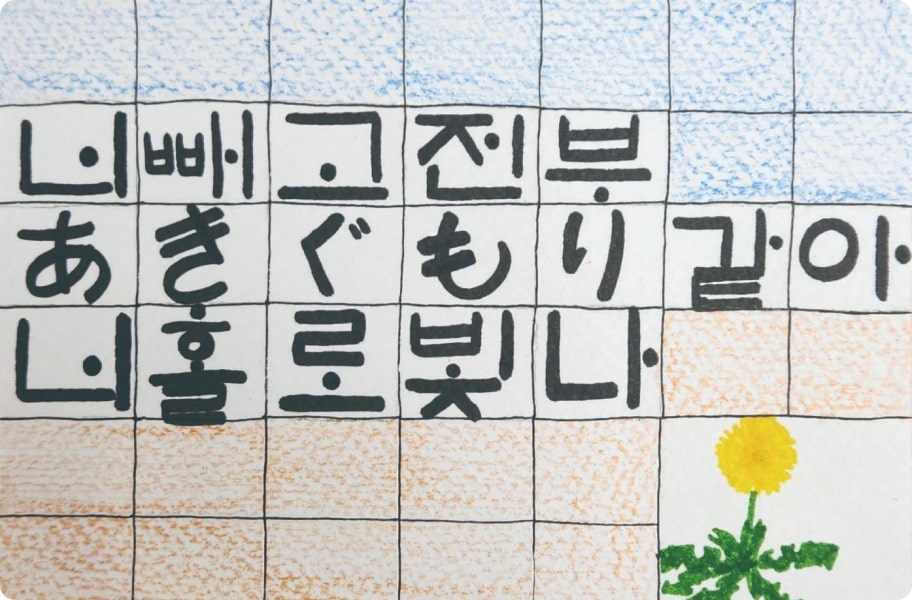 너빼고전부
あきぐもり같아
너홀로빛나